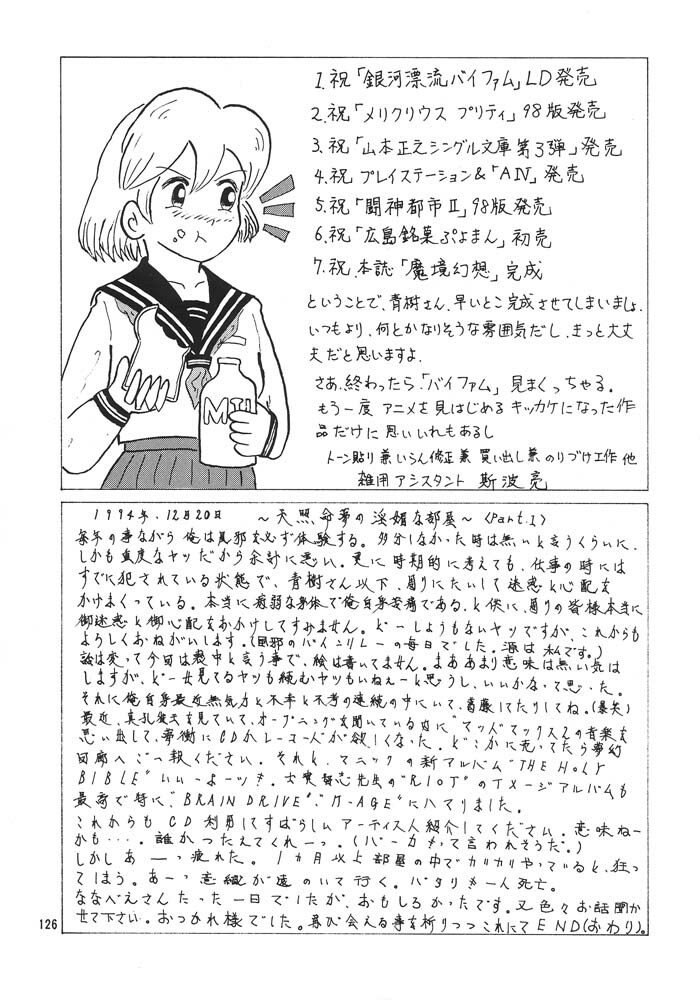 1.祝「銀河漂流バイファム」LD発売
2.祝「メリクリウス プリティ」98版発売
3.祝「山本正之シングル文庫第3弾」発売
4.祝 プレイステーション&「AN」発売
5.祝「闘神都市Ⅱ」98版発売
6.祝「広島銘菓ぷよまん」初売
7.祝.本誌「魔境幻想」完成
ということで、青樹さん、早いとこ完成させてしまいましょ.
いつもより、何とかなりそうな雰囲気だし、きっと大丈
夫だと思いますよ.
さあ、終わったら「バイファム」見まくっちゃる。
もう一度 アニメを見はじめる キッカケになった作
品だけに 思いいれもあるし
トーン貼り兼いらん修正兼 買い出し兼のりづけ工作 他
雑用アシスタント 斯波亮
MIL
1994年.12月20日 〜天照命夢の淫媚な部屋〜 〈Part.1〉
毎年の事ながら俺は風邪を必ず体験する。多分しなかった時は無いと言うくらいに、
しかも重度なヤツだから余計に悪い。更に時期的に考えても、仕事の時には
すでに犯されている状態で、青樹さん以下、周りにたいして迷惑と心配を
かけまくっている。本当に病弱な身体で俺自身苦痛である、と供に、周りの皆様本当に
御迷惑と御心配をおかけしてすみません。どーしようもないヤツですが、これからも
よろしくおねがいします。(風邪のバイキンリレーの毎日でした。源は私です。)
話は変って今回は喪中と言う事で、絵は書いてません。まああまり意味は無い気は
しますが、どー見てるヤツも読むヤツもいねぇーと思うし、いいかなって思った。
それに俺自身最近無気力と不幸と不考の連続の中にいて、葛藤してたりしてね。(爆笑)
最近、真孔雀王を見ていて、オープニングを聞いている内に"マッドマックス2の音楽を
思い出して、夢衝にCDかレコードが欲しくなった。どこかに売ってたら夢幻
回廊へご一報ください。それと、マニックの新アルバム"THE HOLY
BIBLE"いいっよーッ!!。士貴智志先生の"RIOT"のイメージアルバムも
最高で特に"BRAIN DRIVE"、"M-AGE"にハマりました。
これからも CD 利用してすばらしいアーティスト紹介してください。意味ねー
かも…。誰かつたえてくれーっ。(バーカ!!って言われそうだ。)
しかしあーっ疲れた。1カ月以上部屋の中でガリガリやっていると、狂っ
てしまう。あーっ意識が遠のいて行く。バタリ!!一人死亡。
ななべえさんたった一日でしたが、おもしろかったです。又色々お話聞か
せて下さい。おつかれ様でした。再び会える事を祈りつつこれにてEND(おわり)。
126